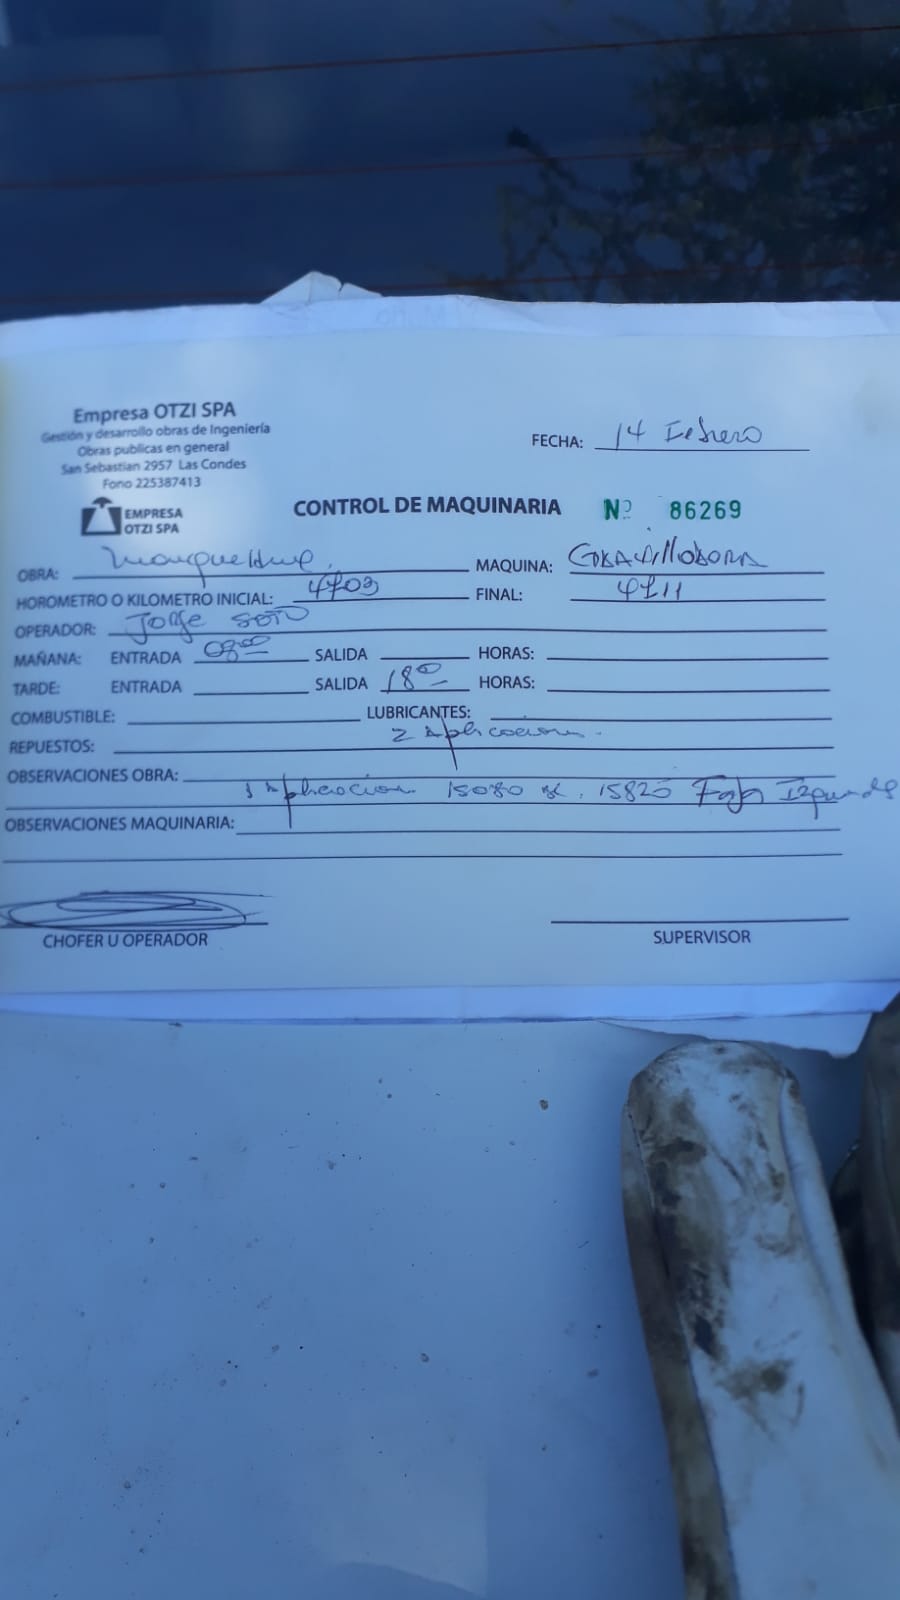 Empresa OTZI SPA
Gestión y desarrollo obras de Ingeniería
Obras publicas en general
San Sebastian 2957 Las Condes
Fono 225387413
EMPRESA
OTZI SPA
FECHA: 14 Febrero
CONTROL DE MAQUINARIA Nº 86269
OBRA: MAQUINA: GRAVILLADORA
HOROMETRO O KILOMETRO INICIAL: 4703 FINAL: 4711
OPERADOR: Jorge SOTO
MAÑANA: ENTRADA 08:00 SALIDA HORAS:
TARDE: ENTRADA SALIDA 18:00 HORAS:
COMBUSTIBLE: LUBRICANTES:
REPUESTOS: 2 Aplicaciones.
OBSERVACIONES OBRA:
1 Aplicacion 15080 15820 Faja Izquierda
OBSERVACIONES MAQUINARIA:
CHOFER U OPERADOR SUPERVISOR